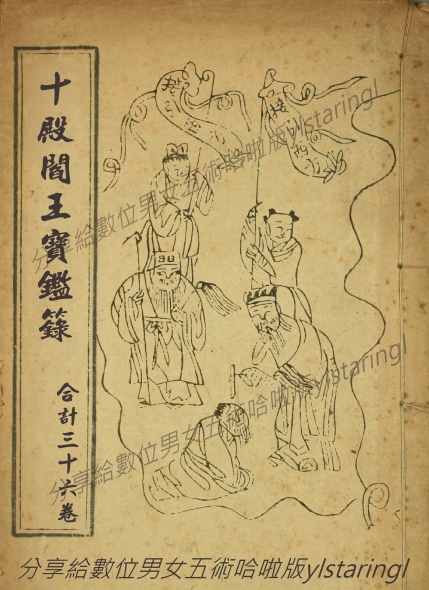 十殿閻王寶鑑籙
合計三十六卷
接引
分享給數位男女五術哈啦版ylstaringl
分享給數位男女五術哈啦版ylstaringl
分享給數位男女五術哈啦版ylstaringl